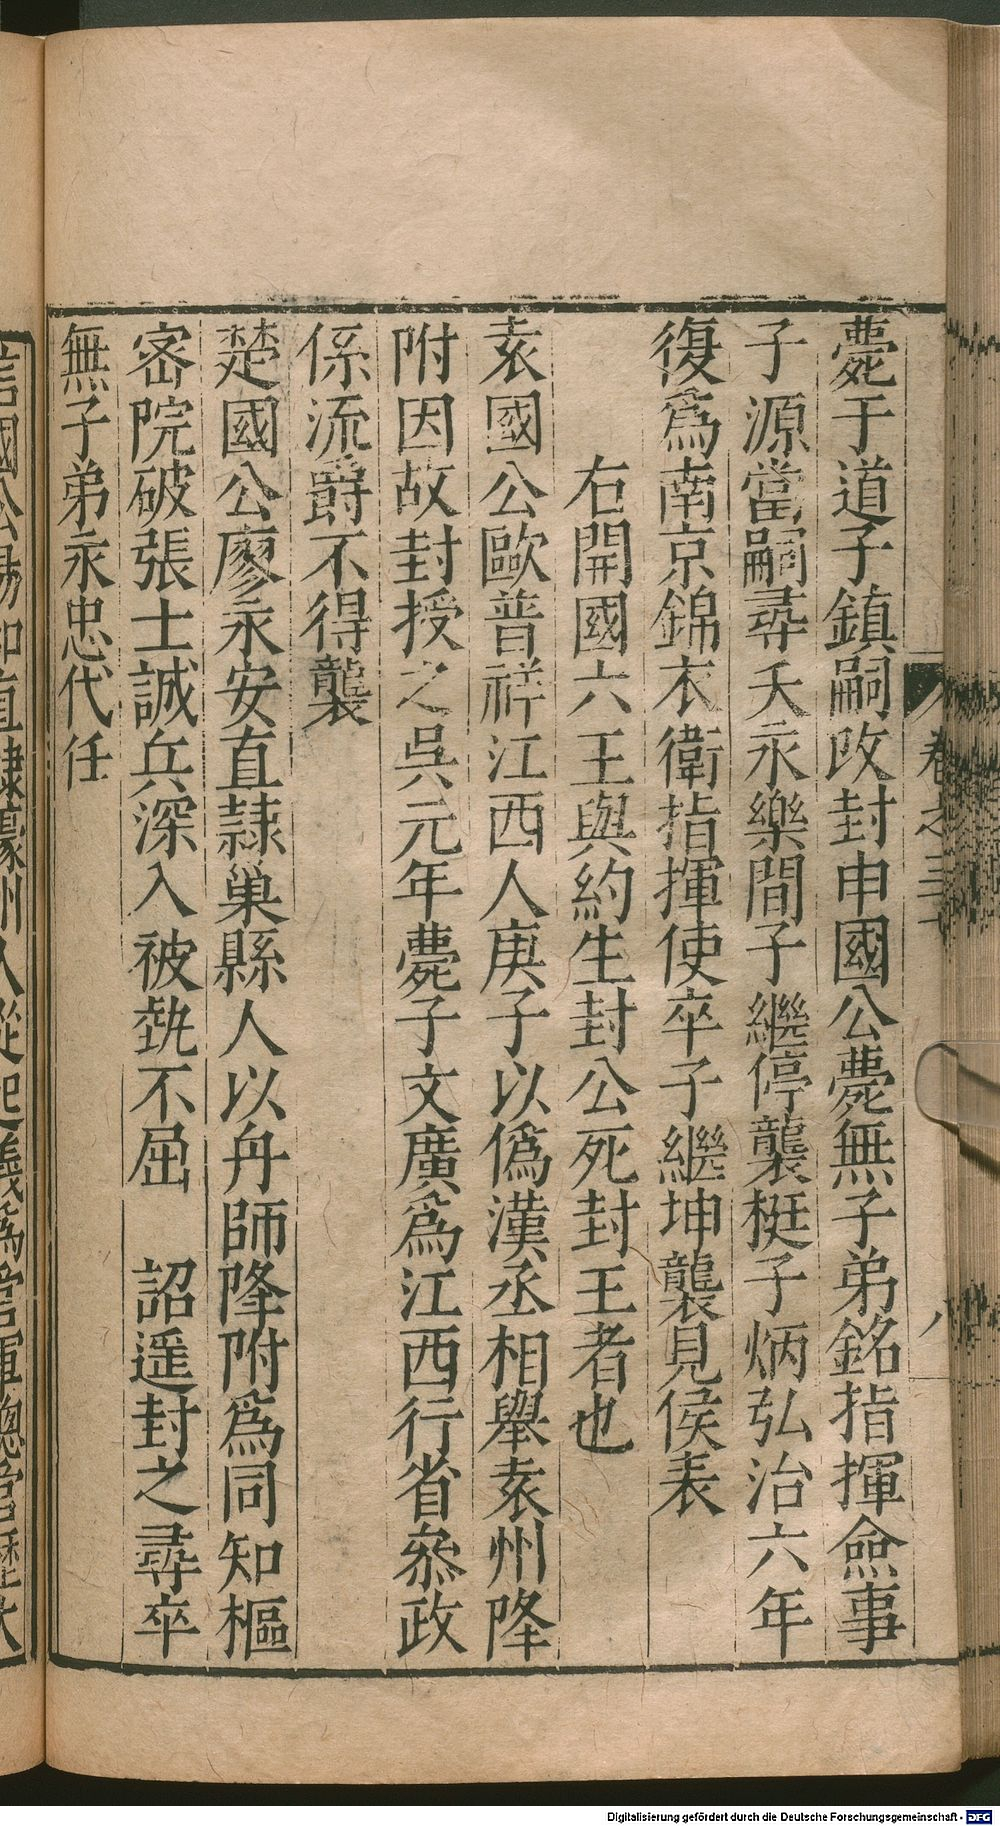 薨于道子鎮嗣改封申國公薨無子弟銘指揮僉事
子源當嗣尋夭永樂間子繼停襲梃子炳弘治六年
復爲南京錦衣衛指揮使卒子繼坤襲見侯表
右開國六王與約生封公死封王者也
袁國公歐普祥江西人庚子以僞漢丞相舉袁州降
附因故封授之吳元年薨子文廣爲江西行省叅政
係流爵不得襲
楚國公廖永安直隷巢縣人以舟師降附爲同知樞
宻院破張士誠兵深入被執不屈　詔遥封之尋卒
無子弟永忠代任
卷之三
八
Digitalisierung gefördert durch die Deutsche Forschungsgemeinschaft - DFG